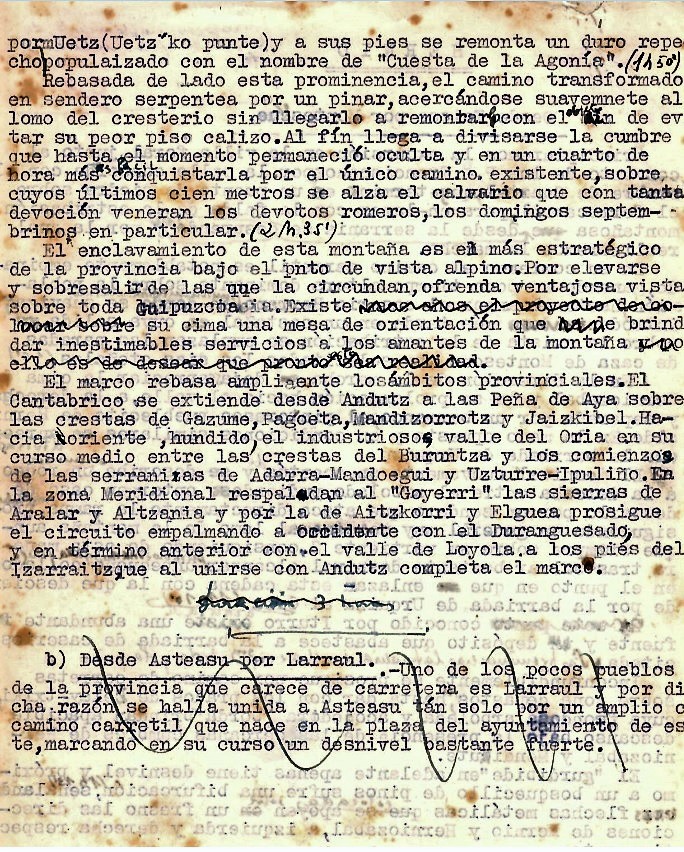 pormUetz(Uetz ko punte)y a sus pies se remonta un duro repe
chopopulaizado con el nombre de "Cuesta de la Agonía".(1h50')
Rebasada de lado esta prominencia,el camino transformado
en sendero serpentea por un pinar,acercándose suavemnete al
lomo del cresterio sin llegarlo a remontar,con el fin de ev
tar su peor piso calizo.Al fín llega a divisarse la cumbre
que hasta el momento permaneció oculta y en un cuarto de
hora más es fácil conquistarla por el único camino existente,sobre
cuyos últimos cien metros se alza el calvario que con tanta
devoción veneran los devotos romeros,los domingos septem-
brinos en particular.(2h.35')
El enclavamiento de esta montaña es el más estratégico
de la provincia bajo el pnto de vista alpino.Por elevarse
y sobresalir de las que la circundan,ofrenda ventajosa vista
sobre toda Guipuzcoa.Existe hace años el proyecto de co-
locar sobre su cima una mesa de orientación que ha de brind
dar inestimables servicios a los amantes de la montaña y por
ello es de desear que pronto sea realidad.
El marco rebasa ampliente losámbitos provinciales.El
Cantabrico se extiende desde Andutz a las Peña de Aya sobre
las crestas de Gazume,Pagoeta,Mandizorrotz y Jaizkibel.Ha-
cia oriente ,hundido,el industrioso valle del Oria en su
curso medio entre las crestas del Buruntza y los comienzos
de las serranizas de Adarra-Mandoegui y Uzturre-Ipuliño.En
la zona Meridional respaldan al "Goyerri" las sierras de
Aralar y Altzania y por la de Aitzkorri y Elguea prosigue
el circuito empalmando a occidente con el Duranguesado,
y en término anterior con el valle de Loyola a los piés del
Izarraitzque al unirse con Andutz completa el marco.
b) Desde Asteasu por Larraul.-Uno de los pocos pueblos
de la provincia que carece de carretera es Larraul y por di
cha razón se halla unida a Asteasu tán solo por un amplio c
camino carretil que nace en la plaza del ayuntamiento de es
te,marcando en su curso un desnivel bastante fuerte.